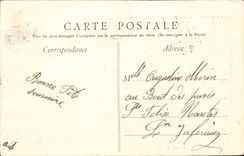 CARTE POSTALE
Tous les pays étrangers n'acceptent pas la correspondance au recto. (Se renseigner à la Poste).
Correspondance
Adresse
Bonne Fête
Mlle Augustine Morin
au Bout des pavés
St Felix Nantes
Lre Inférieure